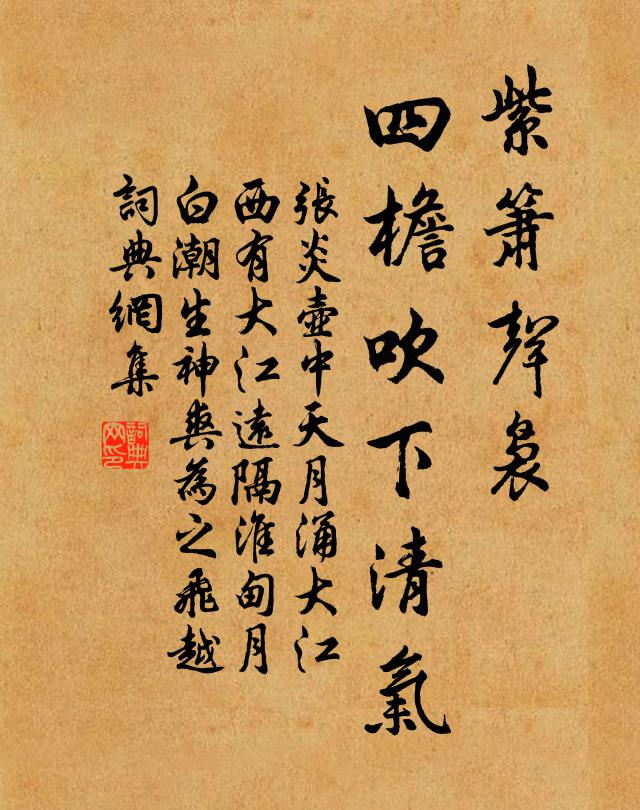 紫箫聲裊
四檐吹下清氣
張炎壺中天月涌大江
西有大江遠隔淮甸月
白潮生神爽為之飛越
詞典網集
詞典
网印